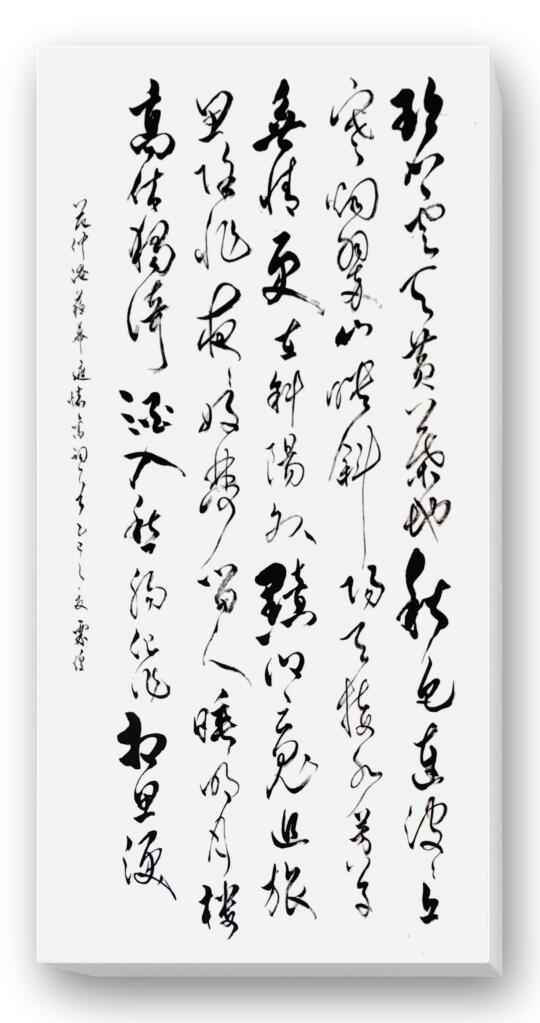 碧云天黄葉地秋色連波〻上
寒烟翠山映斜陽天接水芳草
無情更在斜陽外黯鄉魂追旅
思除非夜〻好夢留人睡明月楼
高休獨倚酒入愁腸化作相思淚
范仲淹蘇幕遮懷舊詞一首乙巳之夏